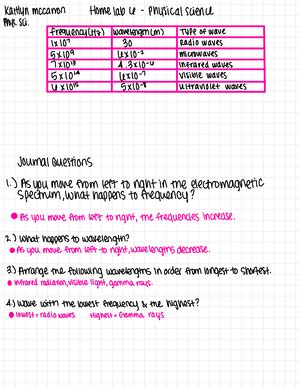 Kaitlyn mccarron Home lab 6 - Physical Science
Phys. Sci.
frequency(Hz) wavelength(m) Type of wave
1x10⁷ 30 Radio waves
5x10⁹ 6x10⁻² microwaves
7x10¹³ 4.3x10⁻⁶ Infrared waves
5x10¹⁴ 6x10⁻⁷ Visible waves
6x10¹⁵ 5x10⁻⁸ Ultraviolet waves
Journal Questions
1.) As you move from left to right in the electromagnetic
Spectrum, what happens to frequency?
As you move from left to right, the frequencies increase.
2.) What happens to wavelength?
As you move from left to right, wavelengths decrease.
3.) Arrange the following wavelengths in order from longest to shortest.
Infrared radiation, visible light, gamma rays.
4.) Wave with the lowest frequency & the highest?
lowest = radio waves Highest = Gamma rays